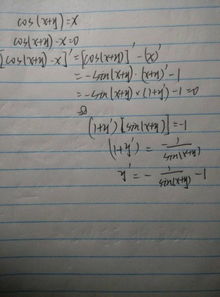 cos(x+y)=x
cos(x+y)-x=0
[cos(x+y)-x]'=[cos(x+y)]'-(x)'
=-sin(x+y)·(x+y)'-1
=-sin(x+y)×(1+y')-1=0
(1+y')[sin(x+y)]=-1
(1+y')=-1/sin(x+y)
y'=-1/sin(x+y)-1